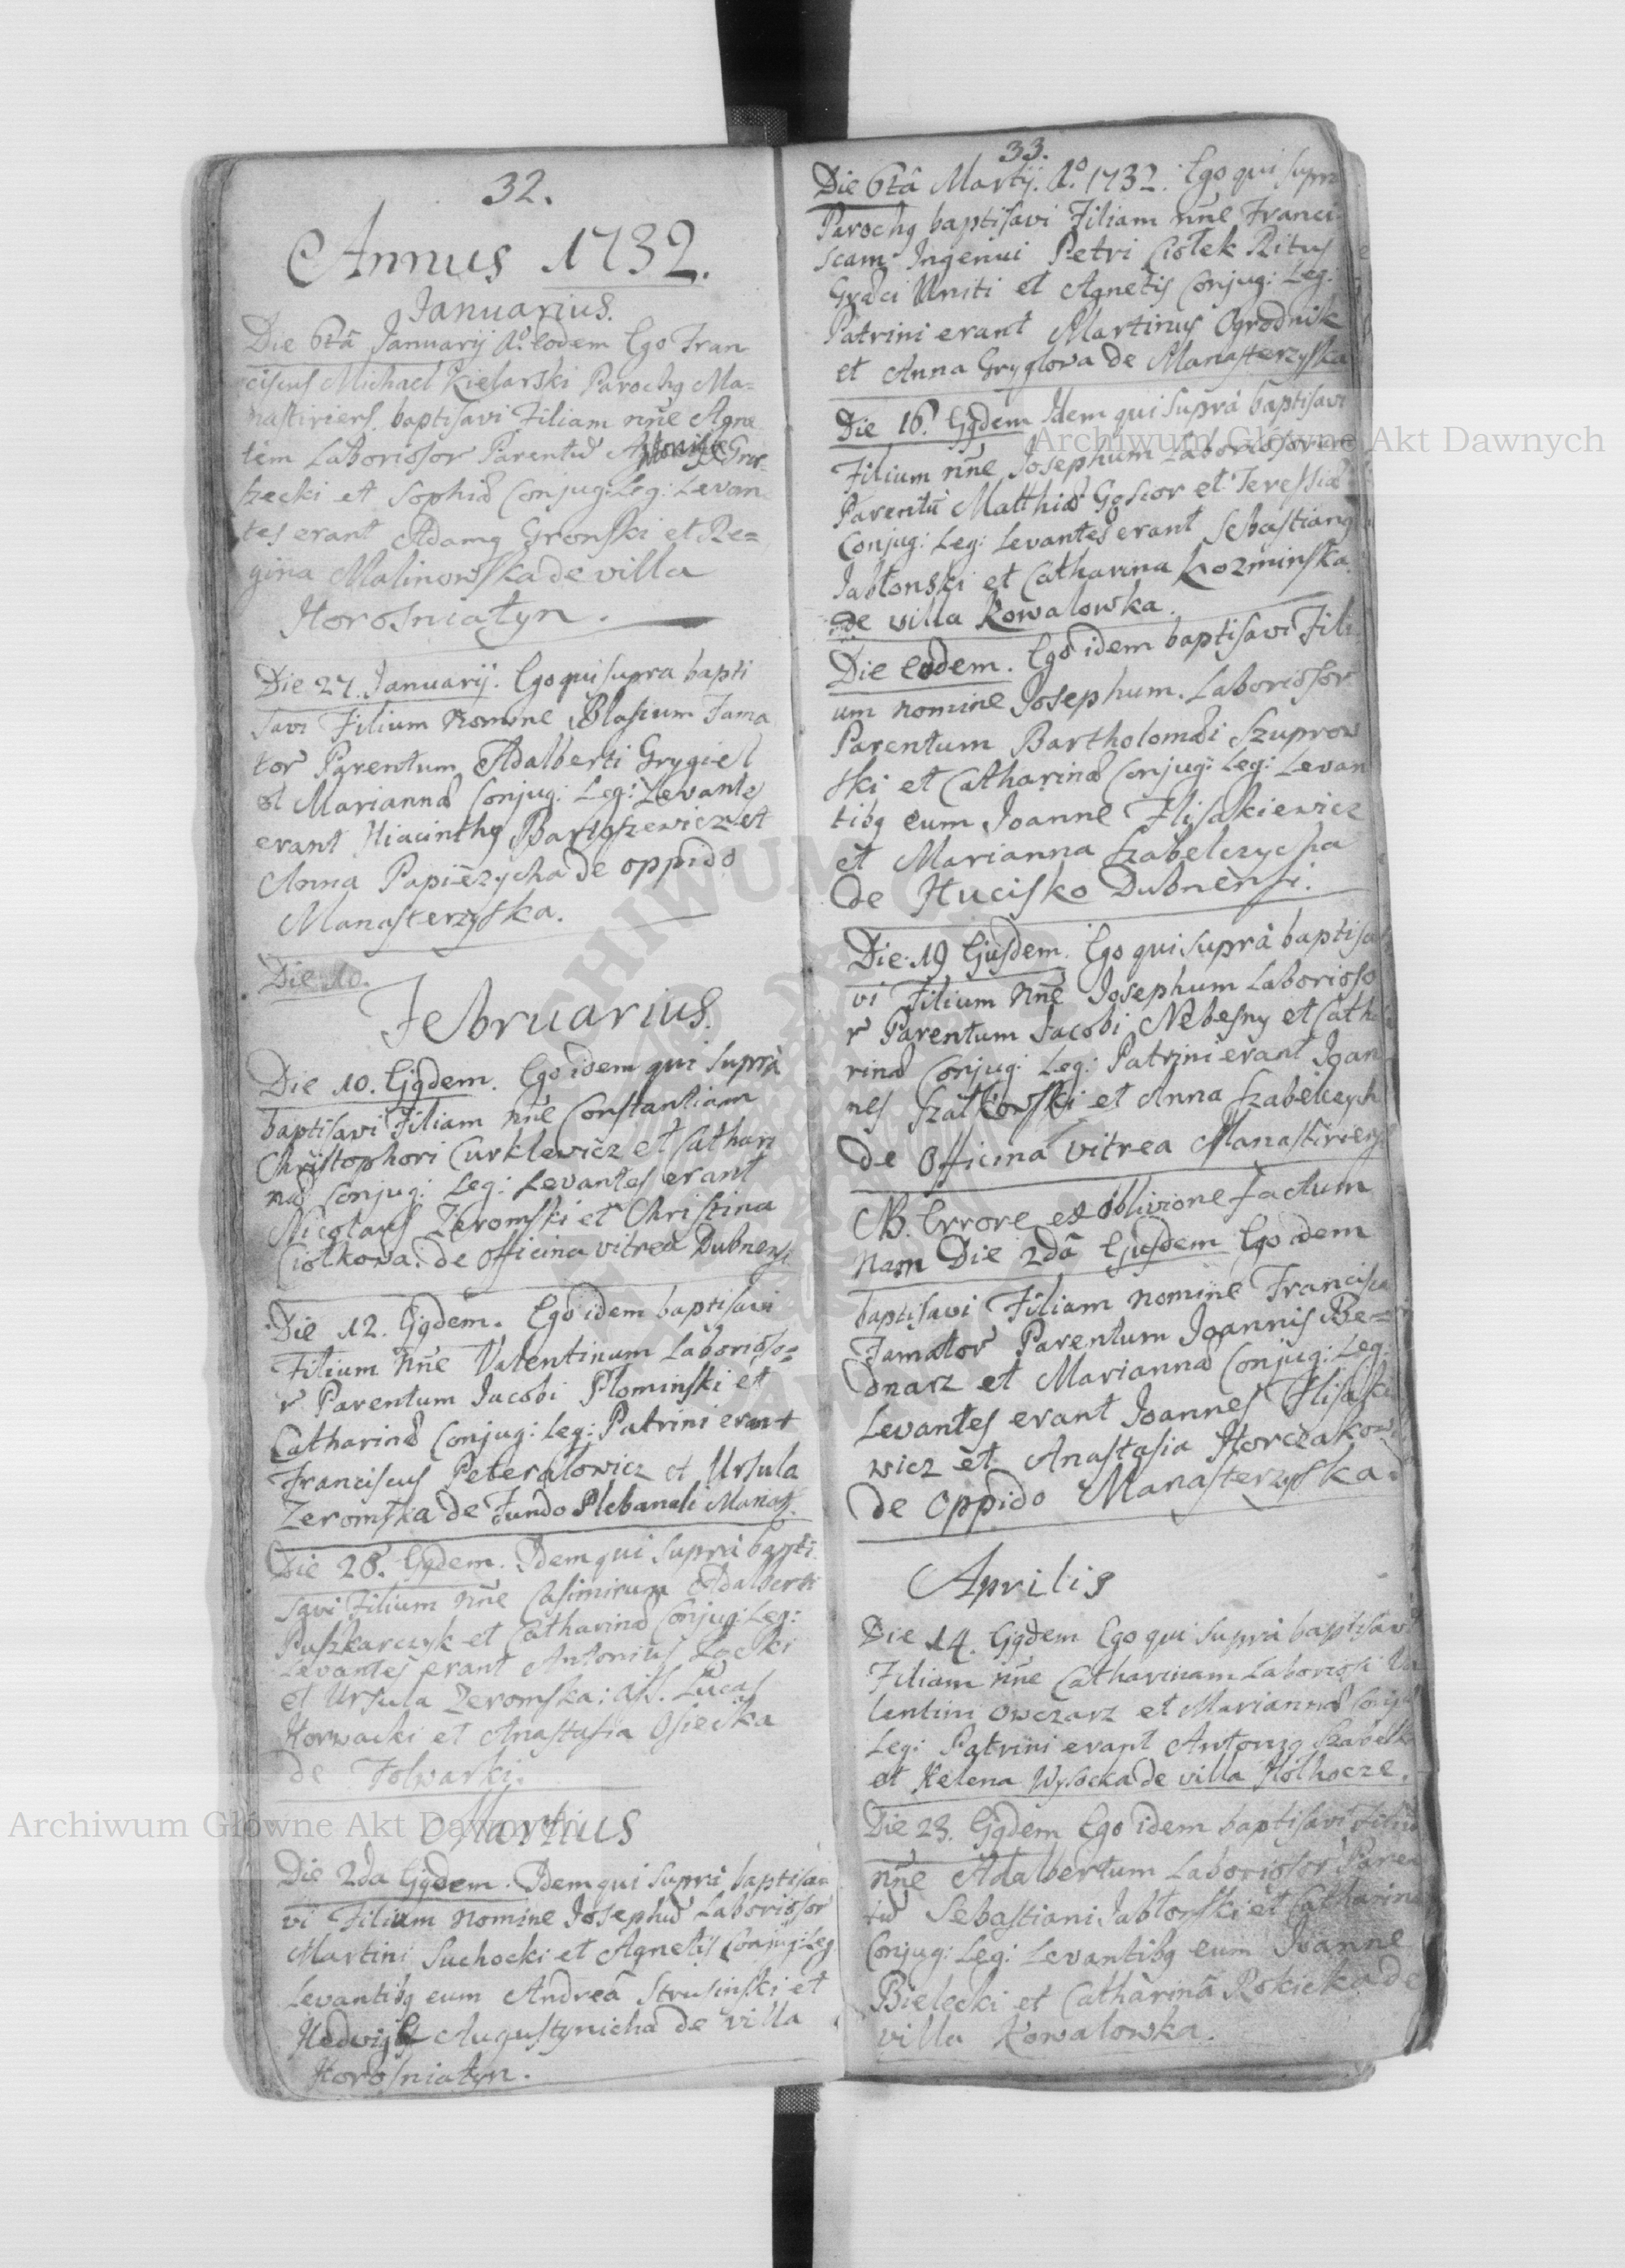 32.
Annus 1732.
Januarius.
Die 6tâ Januarij Aº. eodem Ego Fran
ciscus Michael Kielarski Parochq Ma=
nastiriens. baptisavi Filiam nñe Agne
tem Laboriosor Parentū
szecki et Sophiæ Conjug: Leg: Levan
tes erant Adamq Gronski et Re=
gina Malinowska de villa
Horosniatyn.
Die 27. Januarij. Ego qui supra bapti
savi Filium Nomine Blasium Fama
tor Parentum Adalberti Grygiel
et Mariannæ Conjug: Leg: Levantes
erant Hiacinthq Bartoszewicz et
Anna Papiezycha de oppido
Manasterzyska.
Die 10.
Februarius.
Die 10. Ejqdem. Ego idem qui suprà
baptisavi Filiam nñe Constantiam
Christophori Curklewicz et Cathari
næ Conjug: Leg: Levantes erant
Nicolaus Zeromski et Christina
Ciołkowa. de officina vitrea Dubnensi
Die 12. Ejqdem. Ego idem baptisavi
Filium nñe Valentinum Lavorioso=
r Parentum Jacobi Plominski et
Catharinæ Conjug: Leg: Patrini erant
Franciscus Peteralowicz et Ursula
Zeromska de Fundo Plebanali
Die 28. Ejqdem. Idem qui suprà bapti
savi Filium nñe Casimirum Adalberti
Puszkarczyk et Catharinæ Conjug: Leg:
Levantes erant Antonius Łącki
et Ursula Zeromska: Lucas
Horwacki et Anastasia Osiecka
de Folwarki.
Martius
Die 2da Ejqdem. Idem qui suprà baptisa
vi Filium nomine Josephū Laboriosor
Martini Suchocki et Agnetis Conjug: Leg
Levantibq eum Andreâ Strusinski et
Hedwige Augustynicha de villa
Horosniatyn.
33.
Die 6tâ Martij. Aº. 1732. Ego qui supra
Parochq baptisavi Filiam nñe Franci
scam Ingenui Petri Ciołek Ritus
Græci Uniti et Agnetis Conjug: Leg.
Patrini erant Martinus Ogrodnik
et Anna Gryglowa de Manasterzyska
Die 16. Ejqdem Idem qui suprà baptisavi
Filium nñe Josephum Laboriosorum
Parentū Matthiæ Gąsior et Teressiæ
Conjug: Leg: Levantes erant Sebastianq
Jabłonski et Catharina Kozminska
de villa Kowalowka.
Die eodem. Ego idem baptisavi Fili
um nomine Josephum. Laboriosor
Parentum Bartholomæi Szuprow
ski et Catharinæ Conjug: Leg: Levan
tibq eum Joanne Flisakiewicz
et Marianna Szabelczycha
de Hucisko Dubnensi.
Die 19 Ejusdem. Ego qui suprà baptisa
vi Filium nñe Josephum Laborioso
r Parentum Jacobi Nebesny et Catha
rinæ Conjug: Leg: Patrini erant Joan
nes Szałkowski et Anna Szabelczych
de Officina vitrea Manastiriens
NB. Errore et oblivione factum
nam Die 2dâ Ejusdem Ego idem
baptisavi Filiam nomine Francisca
Famator Parentum Joannis Be=
dnarz et Mariannæ Conjug: Leg:
Levantes erant Joannes Flisaki
wicz et Anastasia Horczakow
de oppido Manasterzyska.
Aprilis
Die 14. Ejqdem Ego qui suprà baptisavi
Filiam nñe Catharinam Laboriosi Va
lentini Owczarz et Mariannæ Conju
Leg: Patrini erant Antoniq Szabelk
et Helena Wysocka de villa Holhocze.
Die 23. Ejqdem Ego idem baptisavi Filiū
nñe Adalbertum Laboriosor Paren
tū Sebastiani Jabłonski et Catharinæ
Conjug: Leg: Levantibq eum Joanne
Bielecki et Catharinâ Rokicka de
villa Kowalowka.
Archiwum Główne Akt Dawnych
Archiwum Główne Akt Dawnych